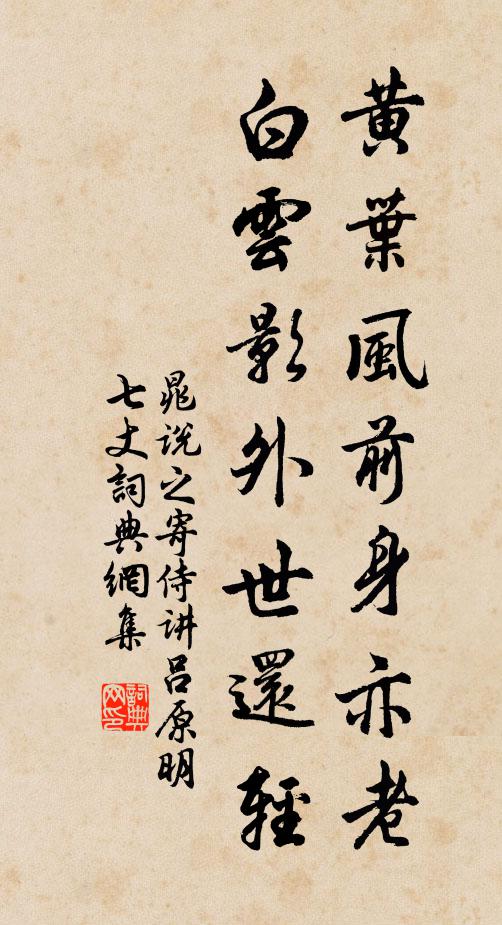 黃葉風前身亦老
白雲影外世還輕
晁說之寄侍讲吕原明
七丈詞典網集
詞典
网印